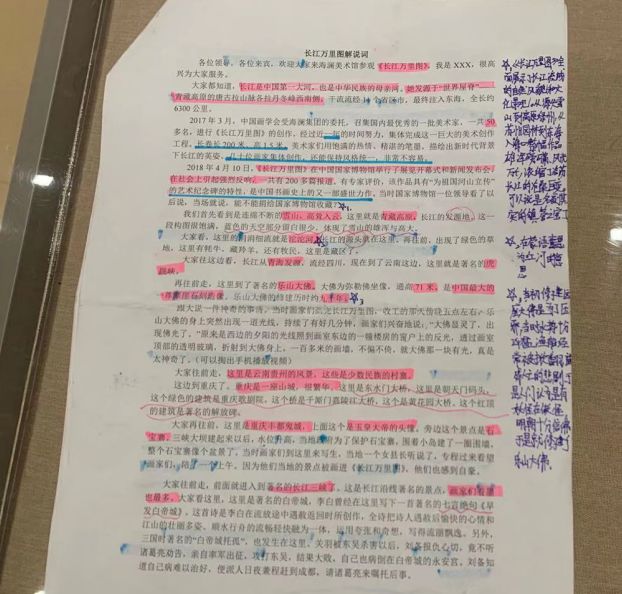 长江万里图解说词
各位领导、各位来宾，欢迎大家来海澜美术馆参观《长江万里图》，我是 XXX，很高
兴为大家服务。
大家都知道，长江是中国第一大河，也是中华民族的母亲河。她发源于"世界屋脊"——
青藏高原的唐古拉山脉各拉丹冬峰西南侧，干流流经 个省市，最终注入东海，全长约
6300 公里。
2017 年 3 月，中国画学会受海澜集团的委托，召集国内最优秀的一批美术家，一共 50
多名，进行《长江万里图》的创作，经过近一年的时间努力，集体完成这一巨大的美术创作
工程。长卷长 200 米，高 1.5 米，美术家们用饱满的热情、精湛的笔墨，描绘出新时代背景
下长江的英姿。几十位画家集体创作，还能保持风格统一，非常不容易。
2018 年 4 月 10 日，《长江万里图》在中国国家博物馆举行了展览开幕式和新闻发布会，
在社会上引起强烈反响，一共有 200 多篇报道。有专家评价，该作品具有"为祖国河山立传"
的艺术纪念碑的特性，是中国书画史上的又一部盛世力作。当时国家博物馆一位领导看了以
后说，当场就说，能不能捐给国家博物馆收藏？
我们首先看到是连绵不断的雪山，高耸入云，这里就是青藏高原，长江的发源地，这一
段构图很饱满，蓝色的天空部分留白很少，体现了雪山的雄浑与高大。
大家看，这里的涓涓细流就是沱沱河，长江的源头就在这里。再在前，出现了绿色的草
地，这里有牦牛、藏羚羊，还有牧民，这里是藏区了，
大家往这边看，长江从青海发源，流经四川，现在到了云南这边，这里就是著名的虎
跳峡。
再往前走，这里到了著名的乐山大佛，大佛为弥勒佛坐像，通高 71 米，是中国最大的
乐山大佛的修建历时约九十年。
跟大家说一件神奇的事情，当时画家们
乐山大佛的身上突然出现一道光线，持续了有好几分钟，画家们兴奋地说，"大佛显灵了，出
现佛光了。"原来是西边的夕阳的光线照到画室东边的一幢楼房的窗户上的反光，通过画室
顶部的透明玻璃，折射到大佛身上，一百多米的画墙，不偏不倚，就大佛那一块有光，真是
太神奇了。（可以掏出手机播放视频）
大家往前走，这里是云南贵州的风景，这些是少数民族的村寨。
这边到重庆了，重庆是一座山城，很繁华，这里是东水门大桥，这里是朝天门码头，
这个绿色的建筑是重庆歌剧院，这个桥是千厮门嘉陵江大桥，这个是黄花园大桥，这个红顶
的建筑是著名的解放碑。
大家再往前，这里是重庆丰都鬼城，上面这个是玉皇大帝的头像，旁边这个景点是石
宝寨，三峡大坝建起来以后，水位升高，当地政府为了保护石宝寨，围着小岛建了一圈围墙，
整个石宝寨像个盆景了，当时画家们到这里来写生，当地一个女县长听说了，专程过来看望
画家们，陪了一个上午，因为他们当地的景点被画进《长江万里图》，他们也感到自豪。
大家往前走，前面就进入到著名的长江三峡了，这是长江沿线著名的景点，画家们着墨
也最多，大家看这里，这里是著名的白帝城，李白曾经在这里写下一首著名的七言绝句《早
发白帝城》，这首诗是李白在流放途中遇赦返回时所创作，全诗把诗人遇赦后愉快的心情和
江山的壮丽多姿、顺水行舟的流畅轻快融为一体，运用夸张和奇想，写得流丽飘逸。另外，
三国时著名的"白帝城托孤"，也发生在这里，关羽被东吴杀害以后，刘备报仇心切，竟不听
诸葛亮劝告，亲自率军出征，攻打东吴，结果大败，自己也病倒在白帝城的永安宫，刘备知
道自己病难以治好，便派人日夜兼程赶到成都，请诸葛亮来嘱托后事。